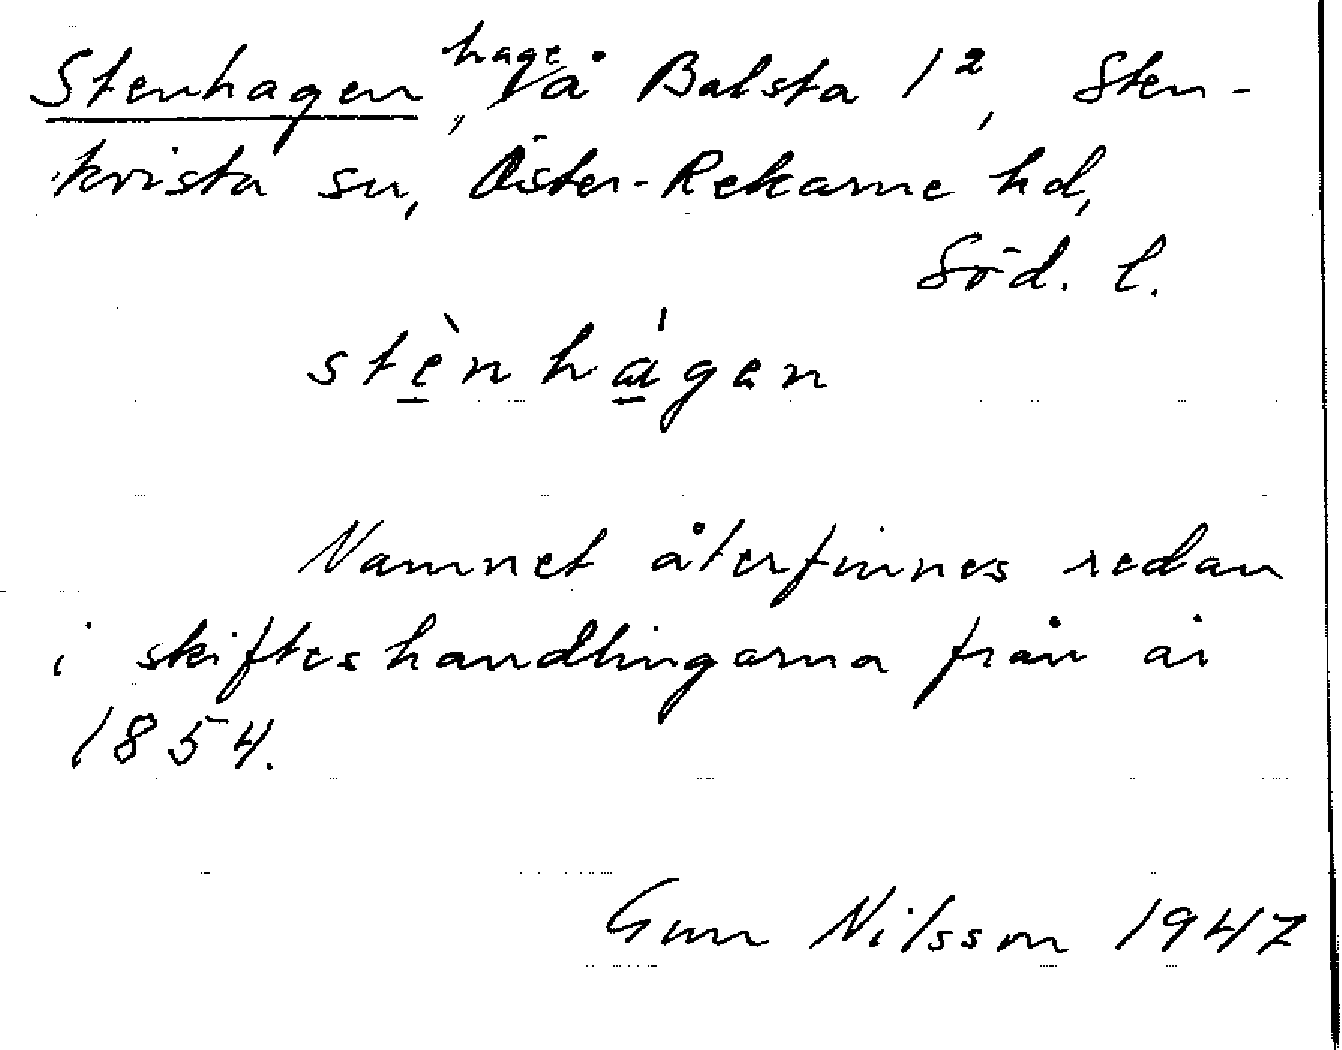 Stenhagen, hage på Balsta 1², Sten-
kvista sn, Öster-Rekarne hd,
Söd. l.
stènhágen
Namnet återfinnes redan
i skifteshandlingarna från år
1854.
Gun Nilsson 1947